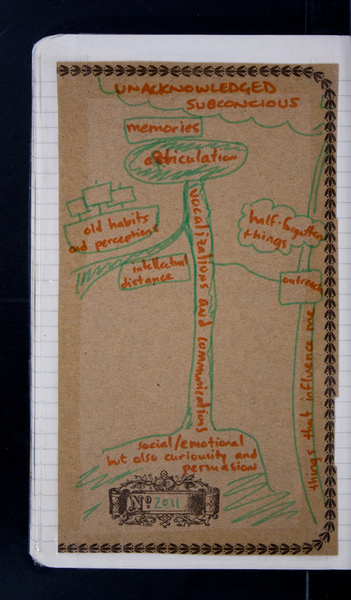 UNACKNOWLEDGED
SUBCONCIOUS
memories
articulation
old habits
and perceptions
half-forgotten
things
intellectual
distance
outreach
vocalizations and communications
things that influence me
social/emotional
but also curiousity and
persuasion
No 2011